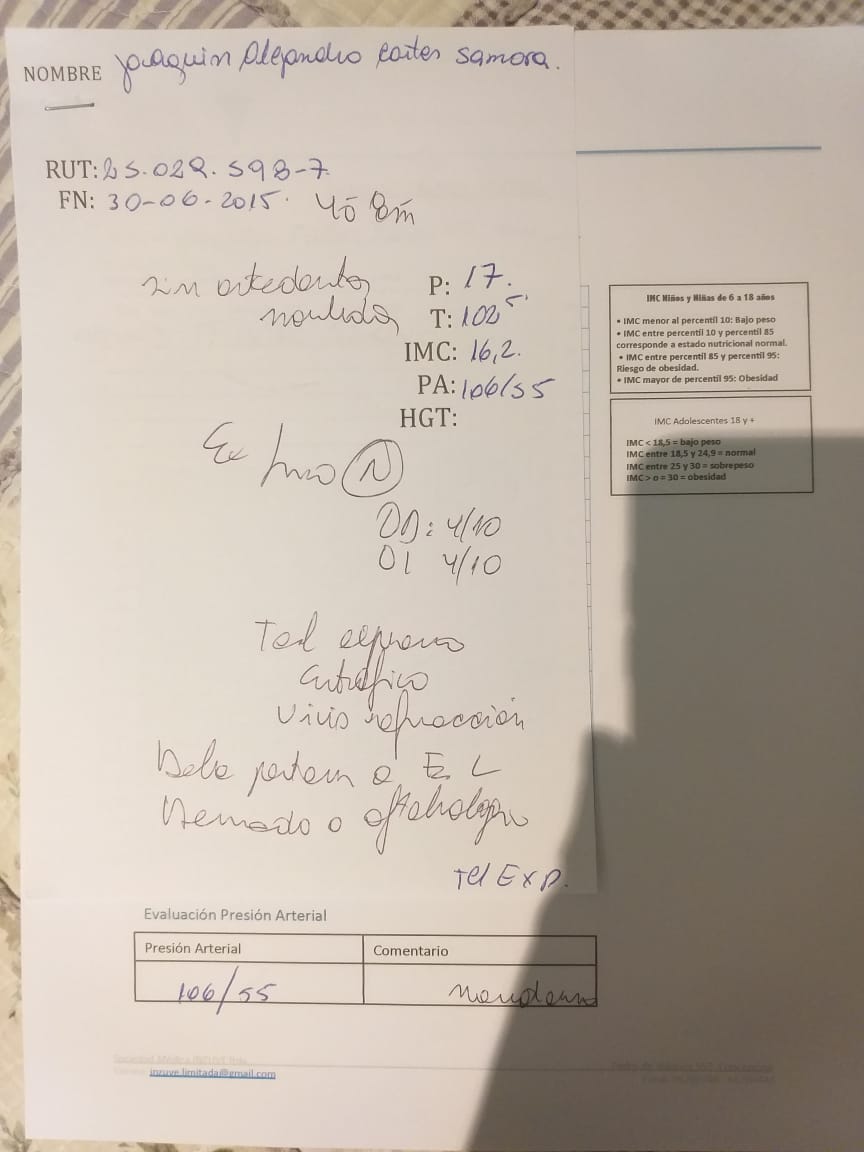 NOMBRE Joaquin Alejandro Cortes Samora.
RUT: 25.022.598-7
FN: 30-06-2015. 4a 8m
sin antecedentes
morbidos
P: 17.
T: 102,5
IMC: 16,2.
PA: 106/55
HGT:
Ex fisico N
OD: 4/10
OI 4/10
Tel expreso
Eutrofico
Vicio refracción
Debe
Derivado a oftalmologo
Tel Exp.
IMC Niños y Niñas de 6 a 18 años
• IMC menor al percentil 10: Bajo peso
• IMC entre percentil 10 y percentil 85
corresponde a estado nutricional normal.
• IMC entre percentil 85 y percentil 95:
Riesgo de obesidad.
• IMC mayor de percentil 95: Obesidad
IMC Adolescentes 18 y +
IMC < 18,5 = bajo peso
IMC entre 18,5 y 24,9 = normal
IMC entre 25 y 30 = sobrepeso
IMC > o = 30 = obesidad
Evaluación Presión Arterial
Presión Arterial
Comentario
106/55
inzuve.limitada@gmail.com